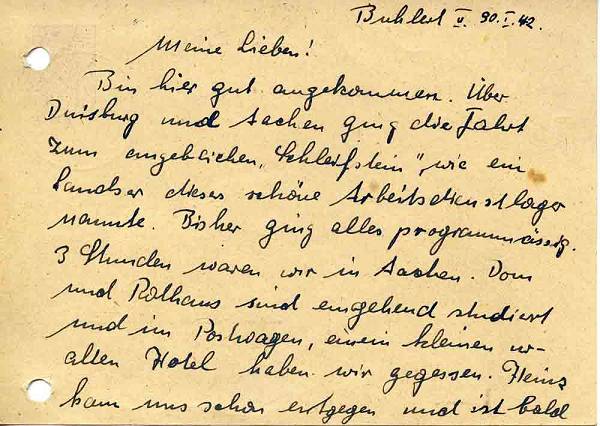 Buhlert v. 30.I.42.
Meine Lieben!
Bin hier gut angekommen. Über
Duisburg und Aachen ging die Fahrt
zum angeblichen „Schleifstein", wie ein
Landser dieses schöne Arbeitsdienstlager
nannte. Bisher ging alles programmässig.
3 Stunden waren wir in Aachen. Dom
und Rathaus sind eingehend studiert
und im Postwagen, einem kleinen ur-
alten Hotel haben wir gegessen. Heinz
kam uns schon entgegen und ist bald